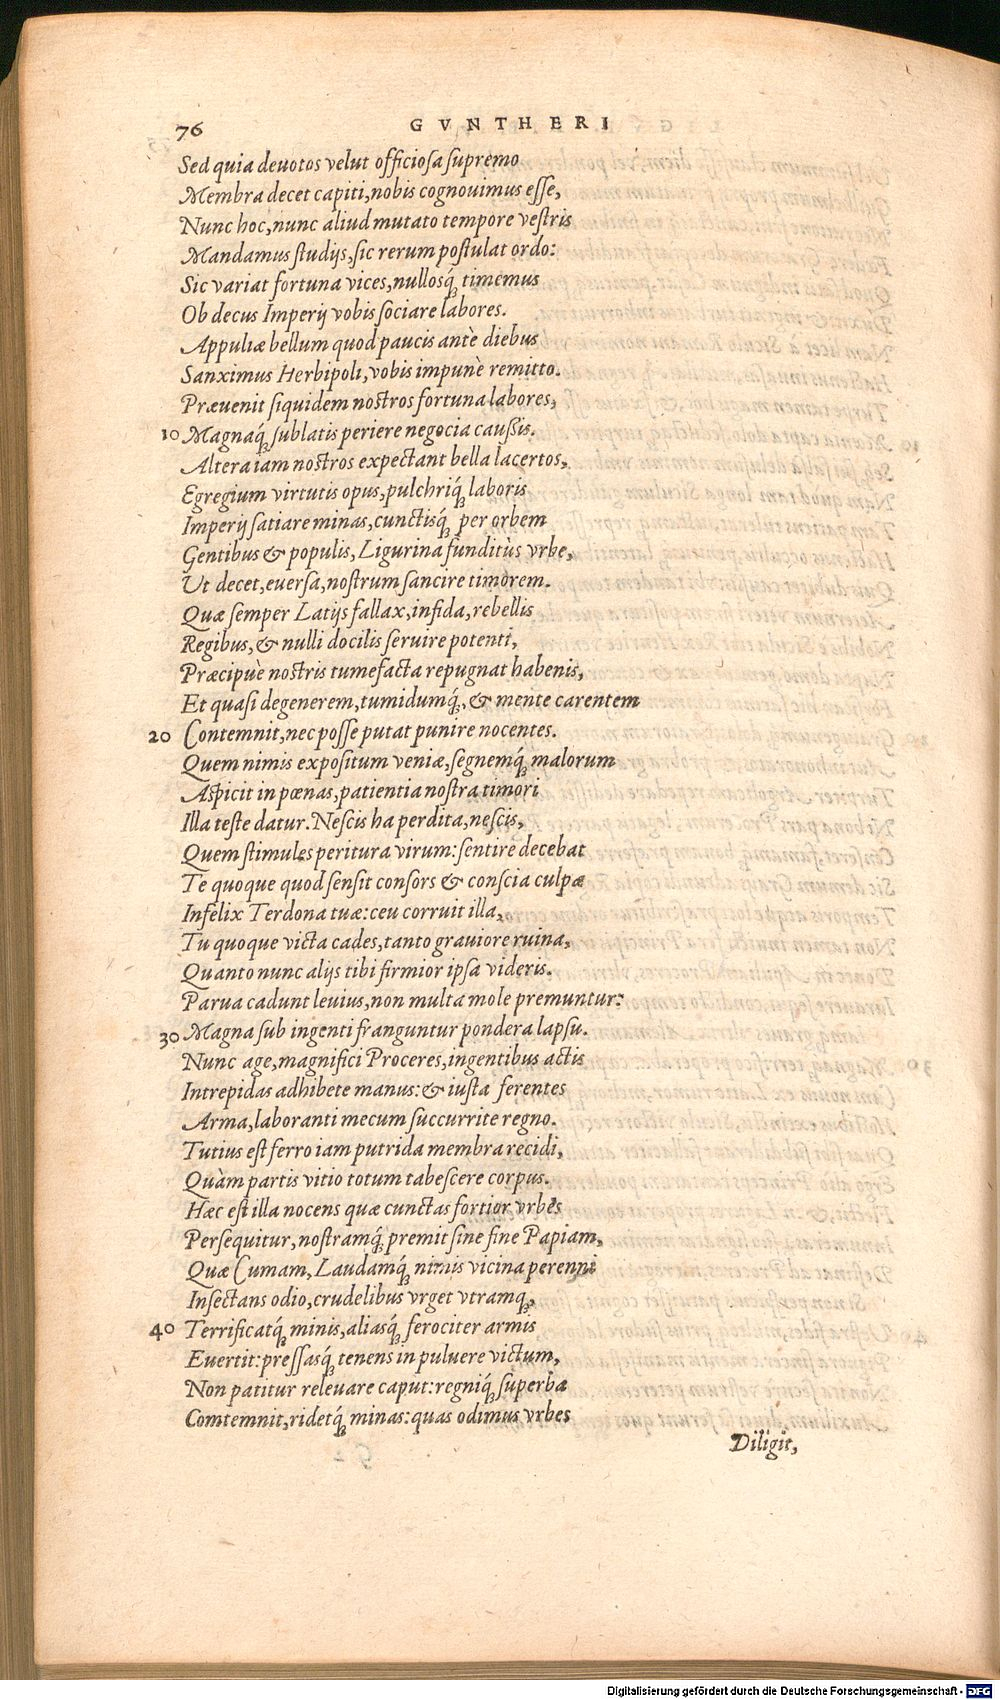 76 GVNTHERI
Sed quia deuotos velut officiosa supremo
Membra decet capiti, nobis cognouimus esse,
Nunc hoc, nunc aliud mutato tempore vestris
Mandamus studijs, sic rerum postulat ordo:
Sic variat fortuna vices, nullosq́; timemus
Ob decus Imperij vobis sociare labores.
Appuliæ bellum quod paucis antè diebus
Sanximus Herbipoli, vobis impunè remitto.
Præuenit siquidem nostros fortuna labores,
10 Magnaq́; sublatis periere negocia caussis.
Altera iam nostros expectant bella lacertos,
Egregium virtutis opus, pulchriq́; laboris
Imperij satiare minas, cunctisq́; per orbem
Gentibus & populis, Ligurina funditùs vrbe,
Ut decet, euersa, nostrum sancire timorem.
Quæ semper Latijs fallax, infida, rebellis
Regibus, & nulli docilis seruire potenti,
Præcipuè nostris tumefacta repugnat habenis,
Et quasi degenerem, tumidumq́;, & mente carentem
20 Contemnit, nec posse putat punire nocentes.
Quem nimis expositum veniæ, segnemq́; malorum
Aspicit in pœnas, patientia nostra timori
Illa teste datur. Nescis ha perdita, nescis,
Quem stimules peritura virum: sentire decebat
Te quoque quod sensit consors & conscia culpæ
Infelix Terdona tuæ: ceu corruit illa,
Tu quoque victa cades, tanto grauiore ruina,
Quanto nunc alijs tibi firmior ipsa videris.
Parua cadunt leuius, non multa mole premuntur:
30 Magna sub ingenti franguntur pondera lapsu.
Nunc age, magnifici Proceres, ingentibus actis
Intrepidas adhibete manus: & iusta ferentes
Arma, laboranti mecum succurrite regno.
Tutius est ferro iam putrida membra recidi,
Quàm partis vitio totum tabescere corpus.
Hæc est illa nocens quæ cunctas fortior vrbes
Persequitur, nostramq́; premit sine fine Papiam,
Quæ Cumam, Laudamq́; nimis vicina perenni
Insectans odio, crudelibus vrget vtramq;,
40 Terrificatq́; minis, aliasq́; ferociter armis
Euertit: pressasq́; tenens in puluere victum,
Non patitur releuare caput: regniq́; superba
Comtemnit, ridetq́; minas: quas odimus vrbes
Diligit,
Digitalisierung gefördert durch die Deutsche Forschungsgemeinschaft - DFG